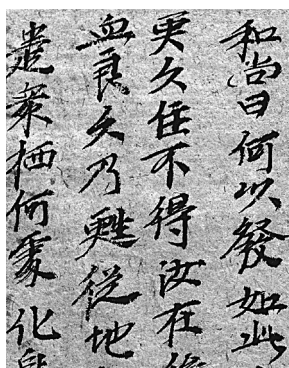 和尚曰何以發如此
更久住不得汝在後
血良久乃甦從地
遣衆栖何處化